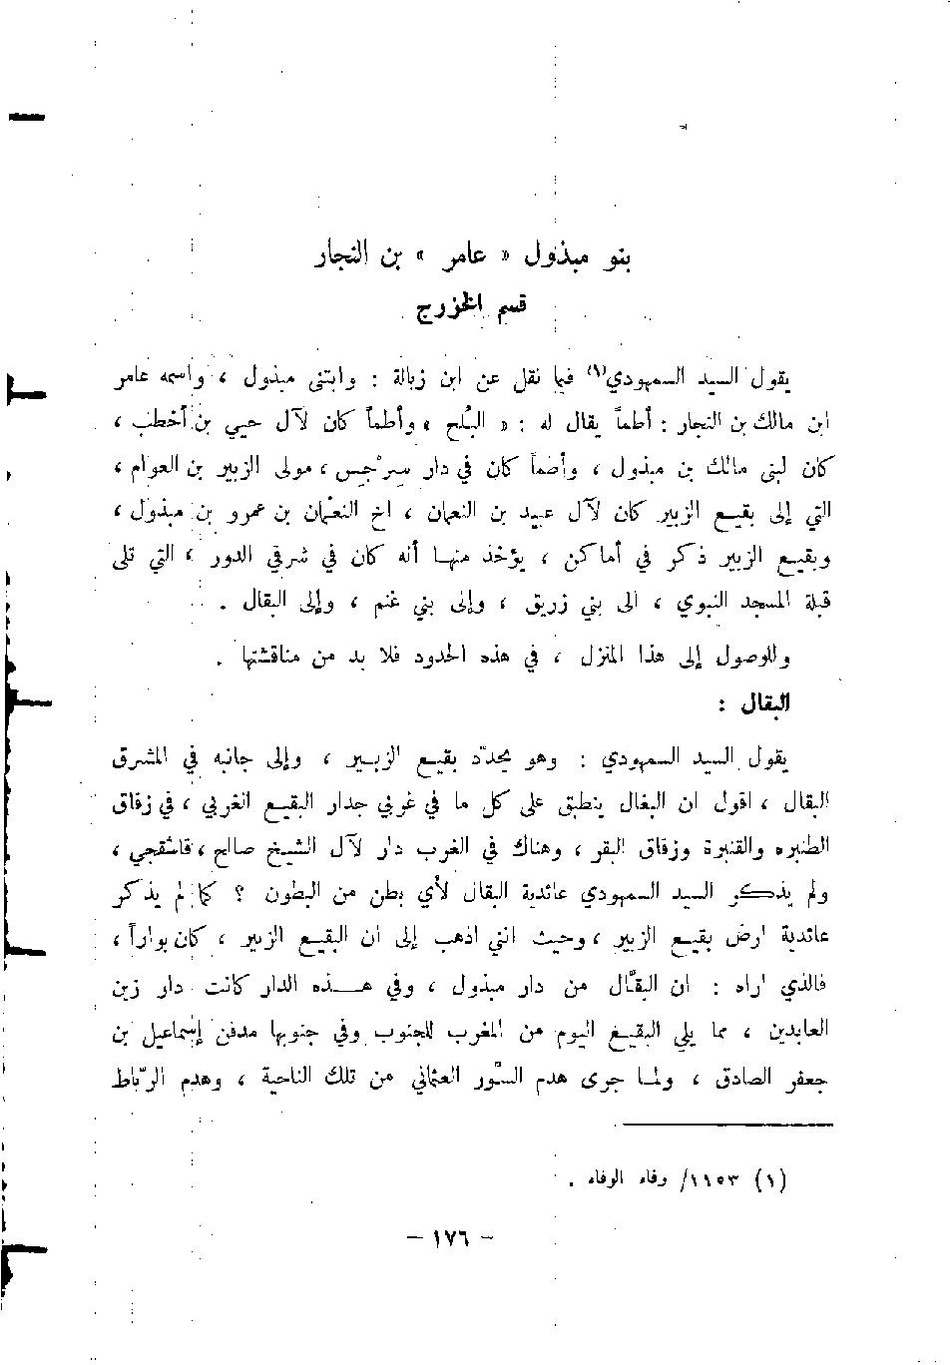 بنو مبذول « عامر » بن النجار
قسم الخزرج
يقول السيد السمهودي(١) فيما نقل عن ابن زبالة : وابتنى مبذول ، واسمه عامر
ابن مالك بن النجار : أطماً يقال له : « البلح » وأطماً كان لآل حيي بن أخطب ،
كان لبنى مالك بن مبذول ، وأطماً كان في دار سرجس ، مولى الزبير بن العوام ،
التي إلى بقيع الزبير كان لآل عبيد بن النعمان ، اخ النعمان بن عمرو بن مبذول ،
وبقيع الزبير ذكر في أماكن ، يؤخذ منها أنه كان في شرقي الدور ، التي تلى
قبلة المسجد النبوي ، الى بني زريق ، وإلى بني غنم ، وإلى البقال .
وللوصول إلى هذا المنزل ، في هذه الحدود فلا بد من مناقشتها .
البقال :
يقول السيد السمهودي : وهو يحدّد بقيع الزبير ، وإلى جانبه في المشرق
البقال ، اقول ان البقال ينطبق على كل ما في غربي جدار البقيع الغربي ، في زقاق
الطنبره والقنبرة وزقاق البقر ، وهناك في الغرب دار لآل الشيخ صالح ، قاشقجي ،
ولم يذكر السيد السمهودي عائدية البقال لأي بطن من البطون ؟ كما لم يذكر
عائدية ارض بقيع الزبير ، وحيث انني اذهب إلى ان البقيع الزبير ، كان بواراً ،
فالذي اراه : ان البقّال من دار مبذول ، وفي هذه الدار كانت دار زين
العابدين ، مما يلي البقيع اليوم من المغرب للجنوب وفي جنوبها مدفن إسماعيل بن
جعفر الصادق ، ولما جرى هدم السّور العثماني من تلك الناحية ، وهدم الرّباط
(١) ١١٥٣/ وفاء الوفاء .
– ١٧٦ –